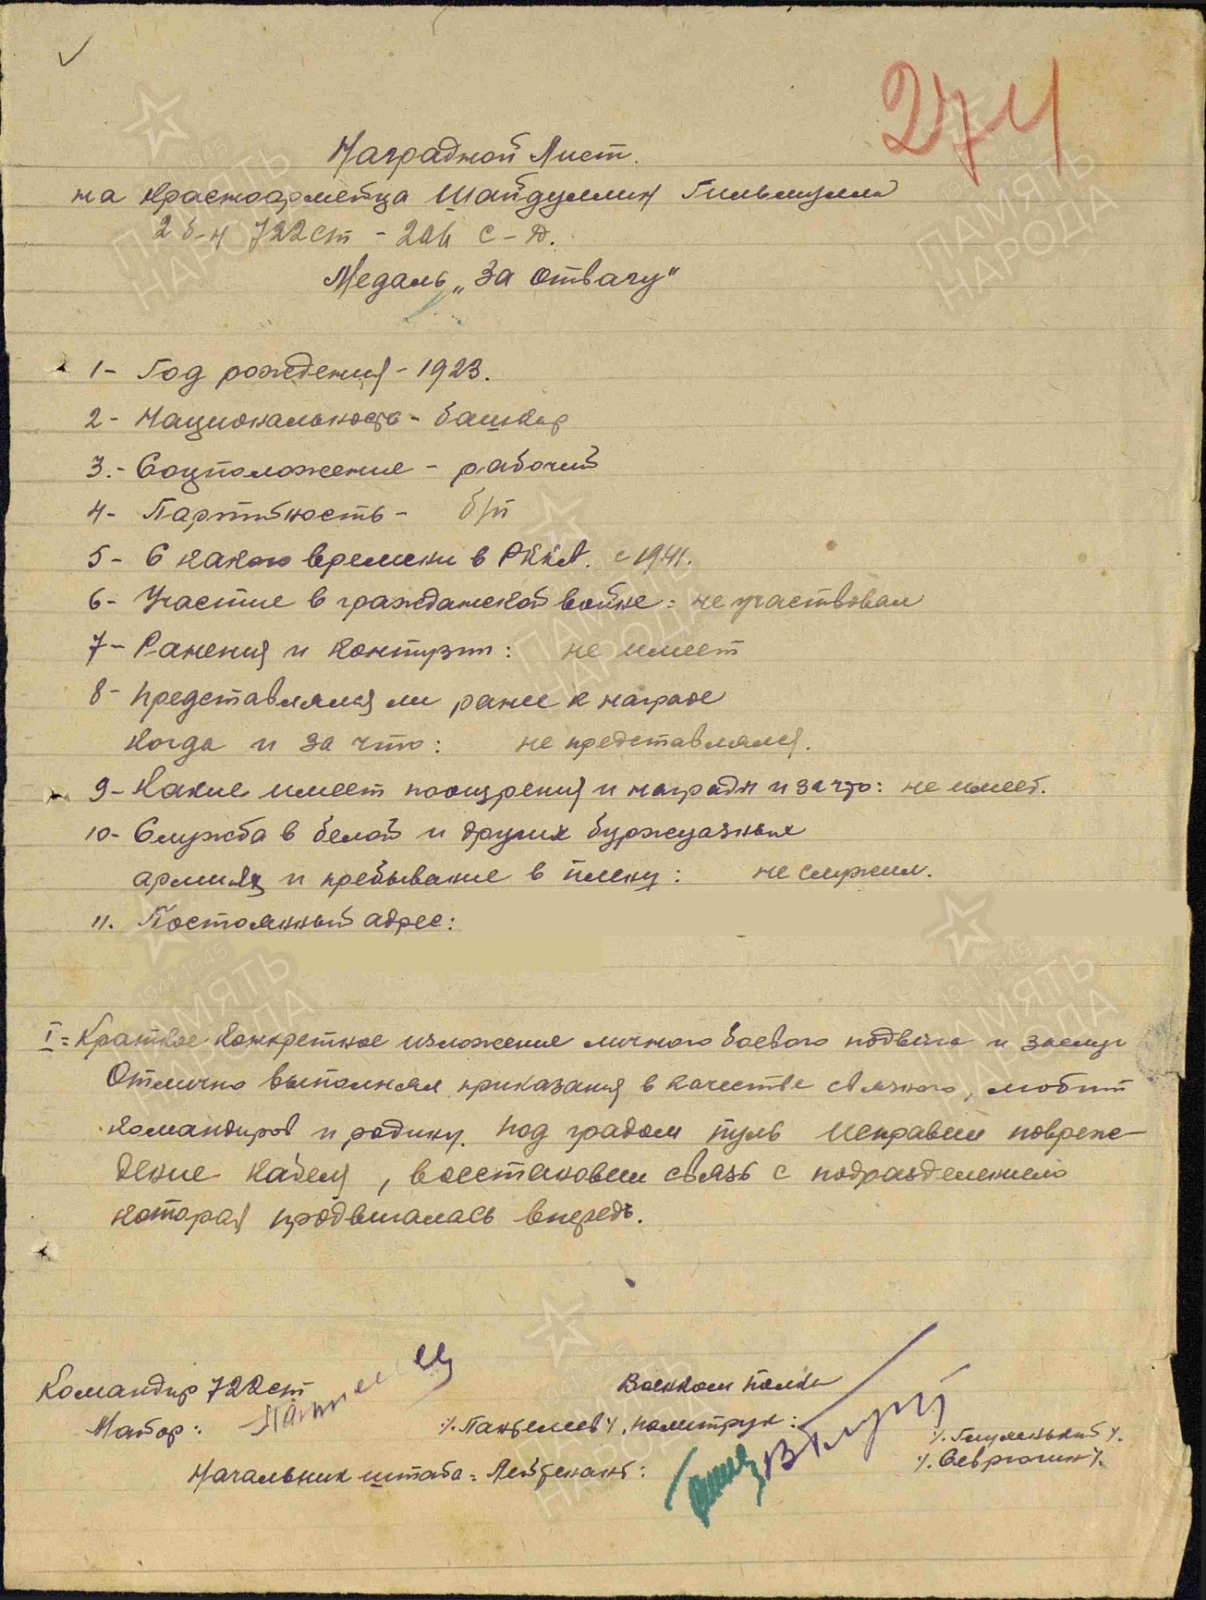 274
Наградной Лист.
на красноармейца Шайдуллин Гильмулла
2 б-н 722 сп - 206 с-д.
Медаль "За отвагу"
1- Год рождения - 1923.
2- Национальность - башкир
3.- Соцположение - рабочий
4- Партийность - б/п
5- С какого времени в РККА. с 1941.
6- Участие в гражданской войне: не участвовал
7- Ранения и контузии: не имеет
8- Представлялся ли ранее к награде
когда и за что: не представлялся.
9- Какие имеет поощрения и награды и за что: не имеет.
10- Служба в белой и других буржуазных
армиях и пребывание в плену: не служил.
11. Постоянный адрес:
I = Краткое конкретное изложение личного боевого подвига и заслуг
Отлично выполнял приказания в качестве связного, любит
командиров и родину. Под градом пуль исправил повреж-
дение кабеля, восстановил связь с подразделением
которая продвигалась вперед.
Командир 722 сп Военком полка
Майор: /.Пантелеев/. политрук: /.Глуленький/.
Начальник штаба = Лейтенант: /.Севрюгин/.
ПАМЯТЬ НАРОДА
1941-1945